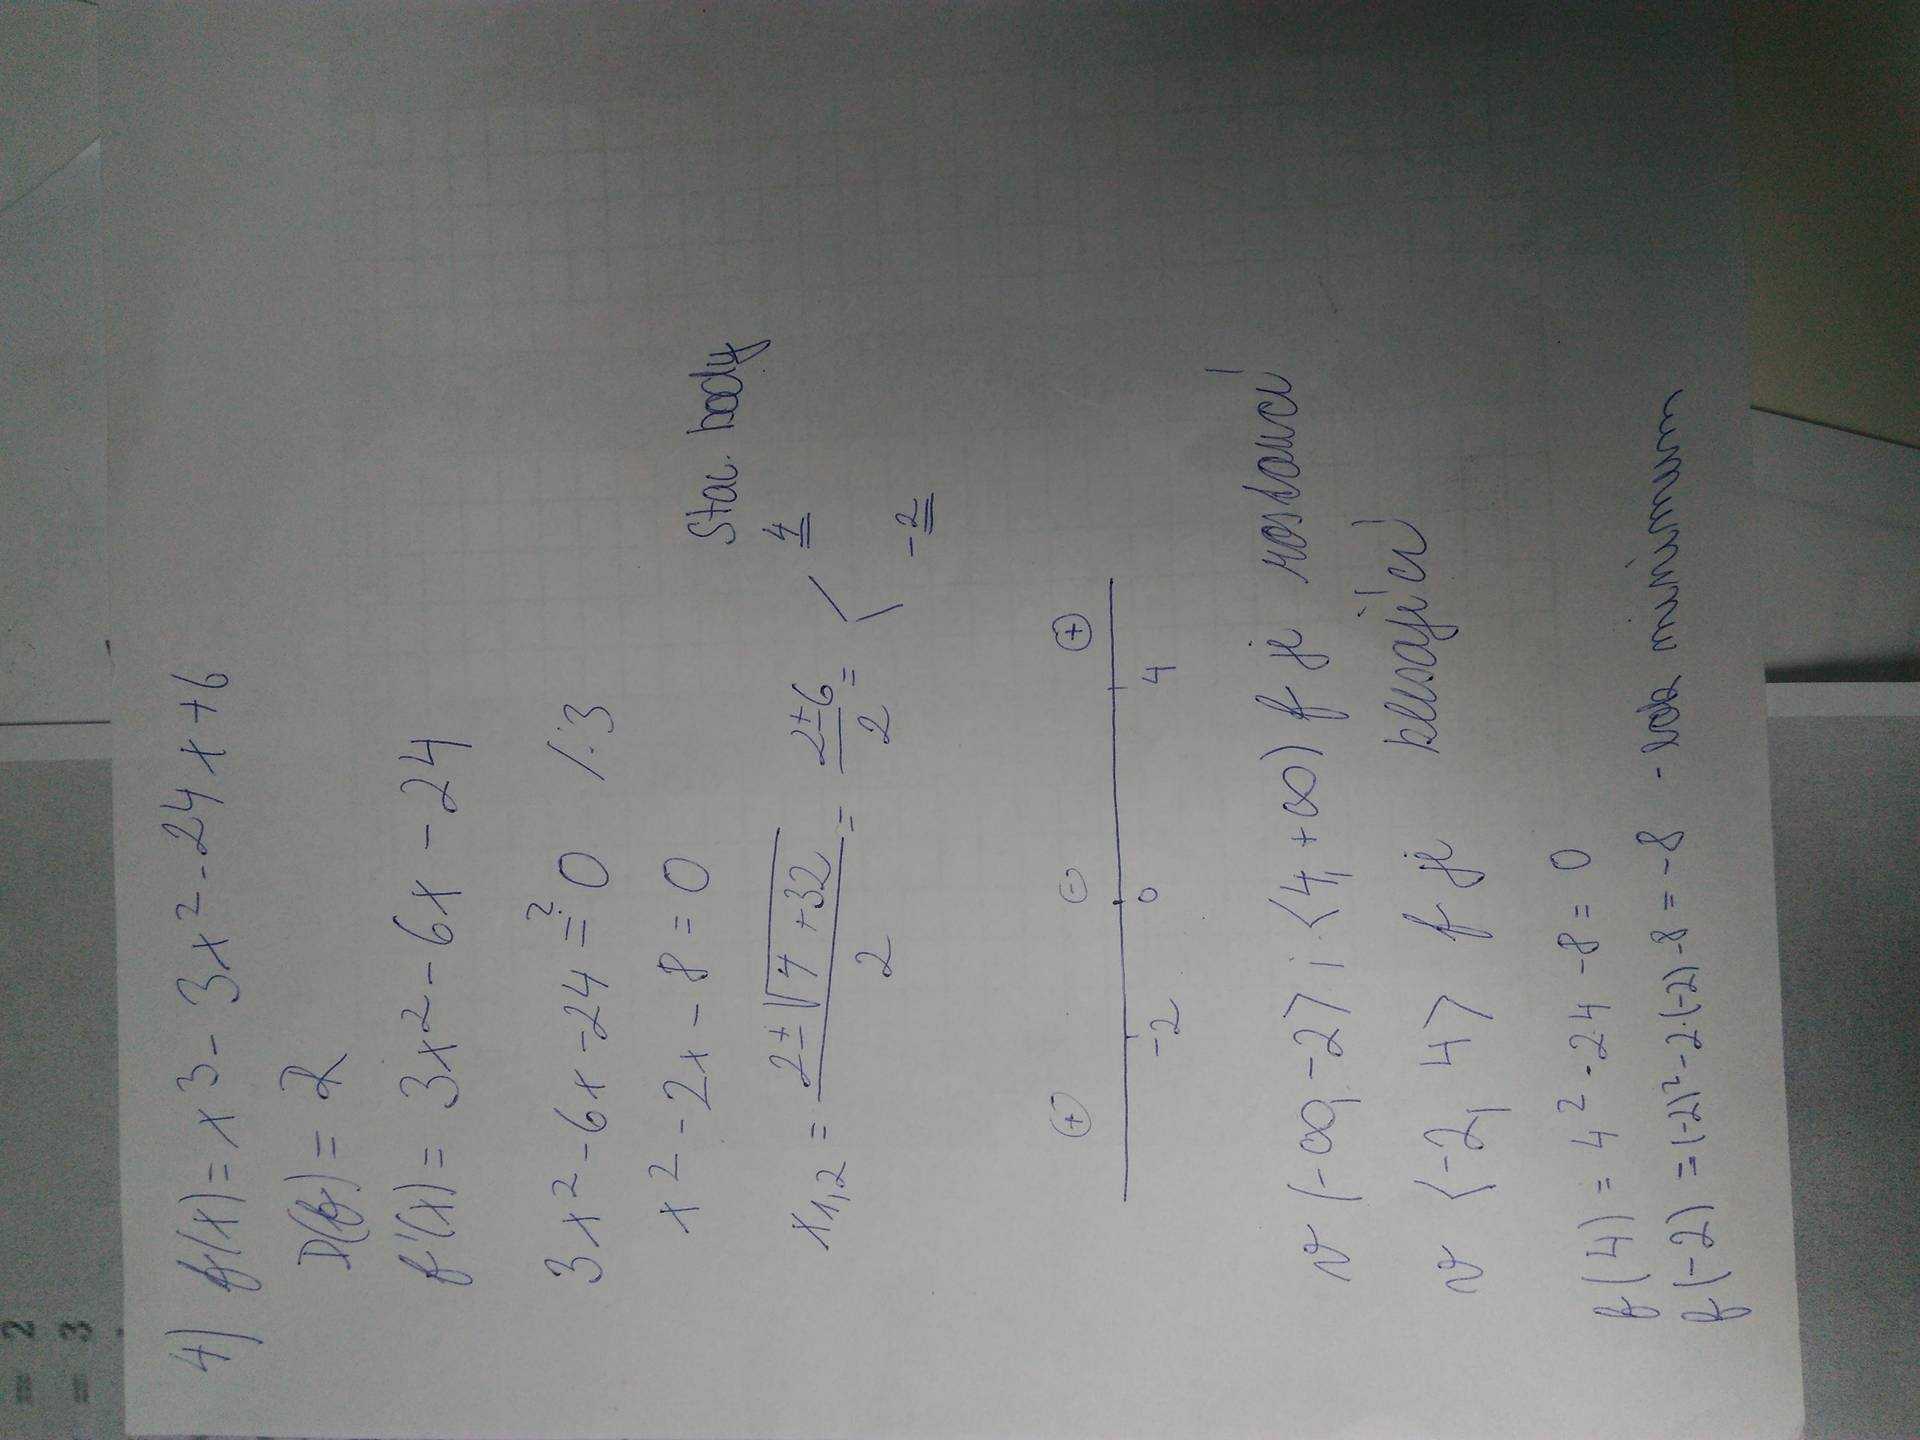 4) f(x) = x³ - 3x² - 24x + 6
D(f) = R
f'(x) = 3x² - 6x - 24
3x² - 6x - 24 =? 0 /:3
x² - 2x - 8 = 0
stac. body
x₁,₂ = (2 ± √(4 + 32))/2 = (2 ± 6)/2 = < 4
-2
+ - +
-2 0 4
v (-∞, -2> i <4, +∞) f je rostoucí
v <-2, 4> f je klesající
f(4) = 4² - 2·4 - 8 = 0
f(-2) = (-2)² - 2·(-2) - 8 = -8 - lok minimum
= 2
= 3